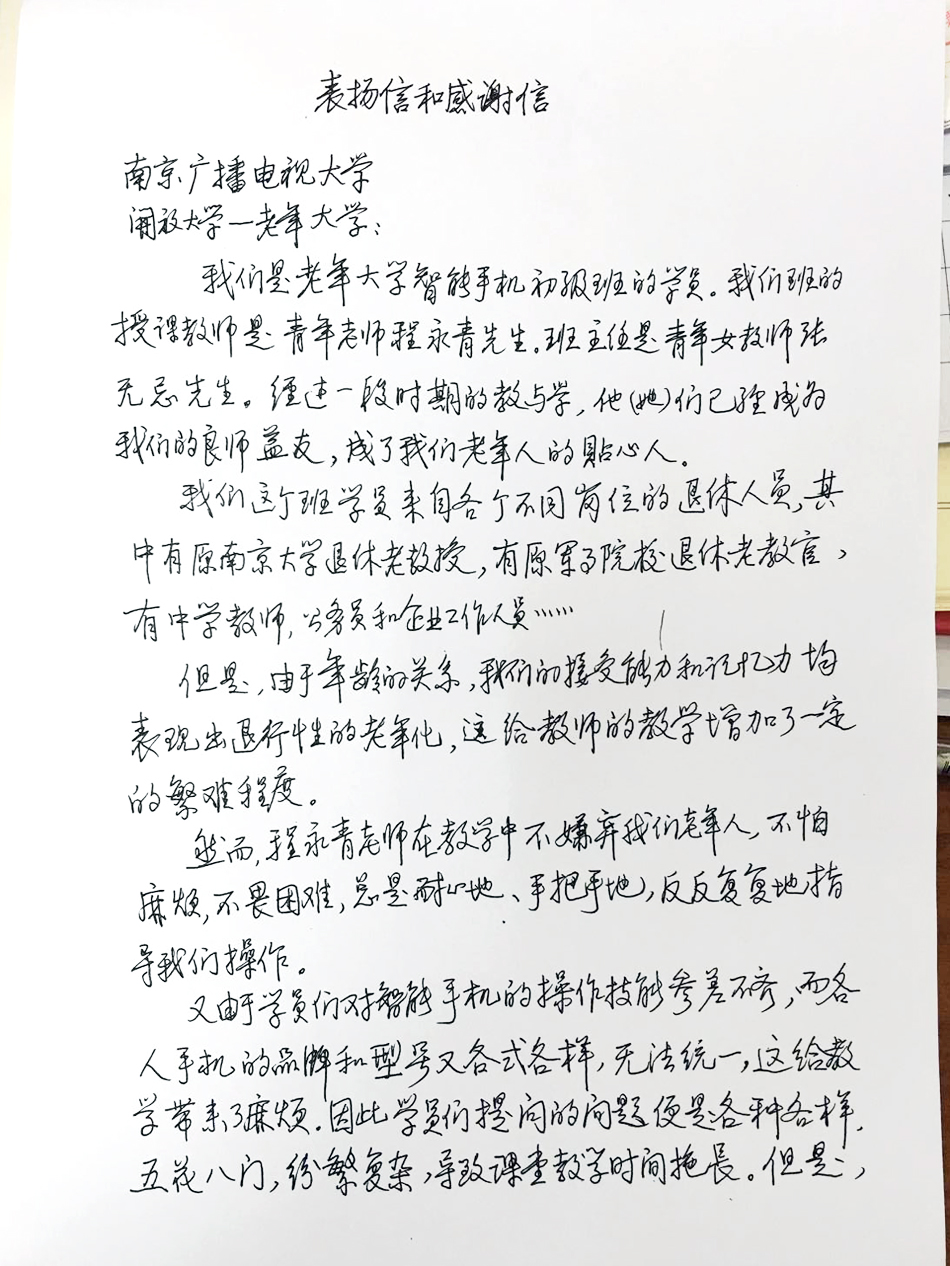 表扬信和感谢信
南京广播电视大学
開放大学一老年大学：
我们是老年大学智能手机初级班的学员。我们班的
授课教师是青年老师程永青先生。班主任是青年女教师张
无忌先生。经过一段时期的教与学，他(她)们已经成为
我们的良师益友，成了我们老年人的貼心人。
我们这个班学员来自各个不同岗位的退休人员，其
中有原南京大学退休老教授，有原军事院校退休老教官，
有中学教师，公务员和企业工作人员……
但是，由于年龄的关系，我们的接受能力和记忆力均
表现出退行性的老年化，这给教师的教学增加了一定
的繁难程度。
然而，程永青老师在教学中不嫌弃我们老年人，不怕
麻烦，不畏困难，总是耐心地、手把手地，反反复复地指
导我们操作。
又由于学员们对智能手机的操作技能参差不齐，而各
人手机的品牌和型号又各式各样，无法统一，这给教
学带来了麻烦。因此学员们提问的问题便是各种各样，
五花八门，纷繁复杂，导致课堂教学时间拖長。但是，